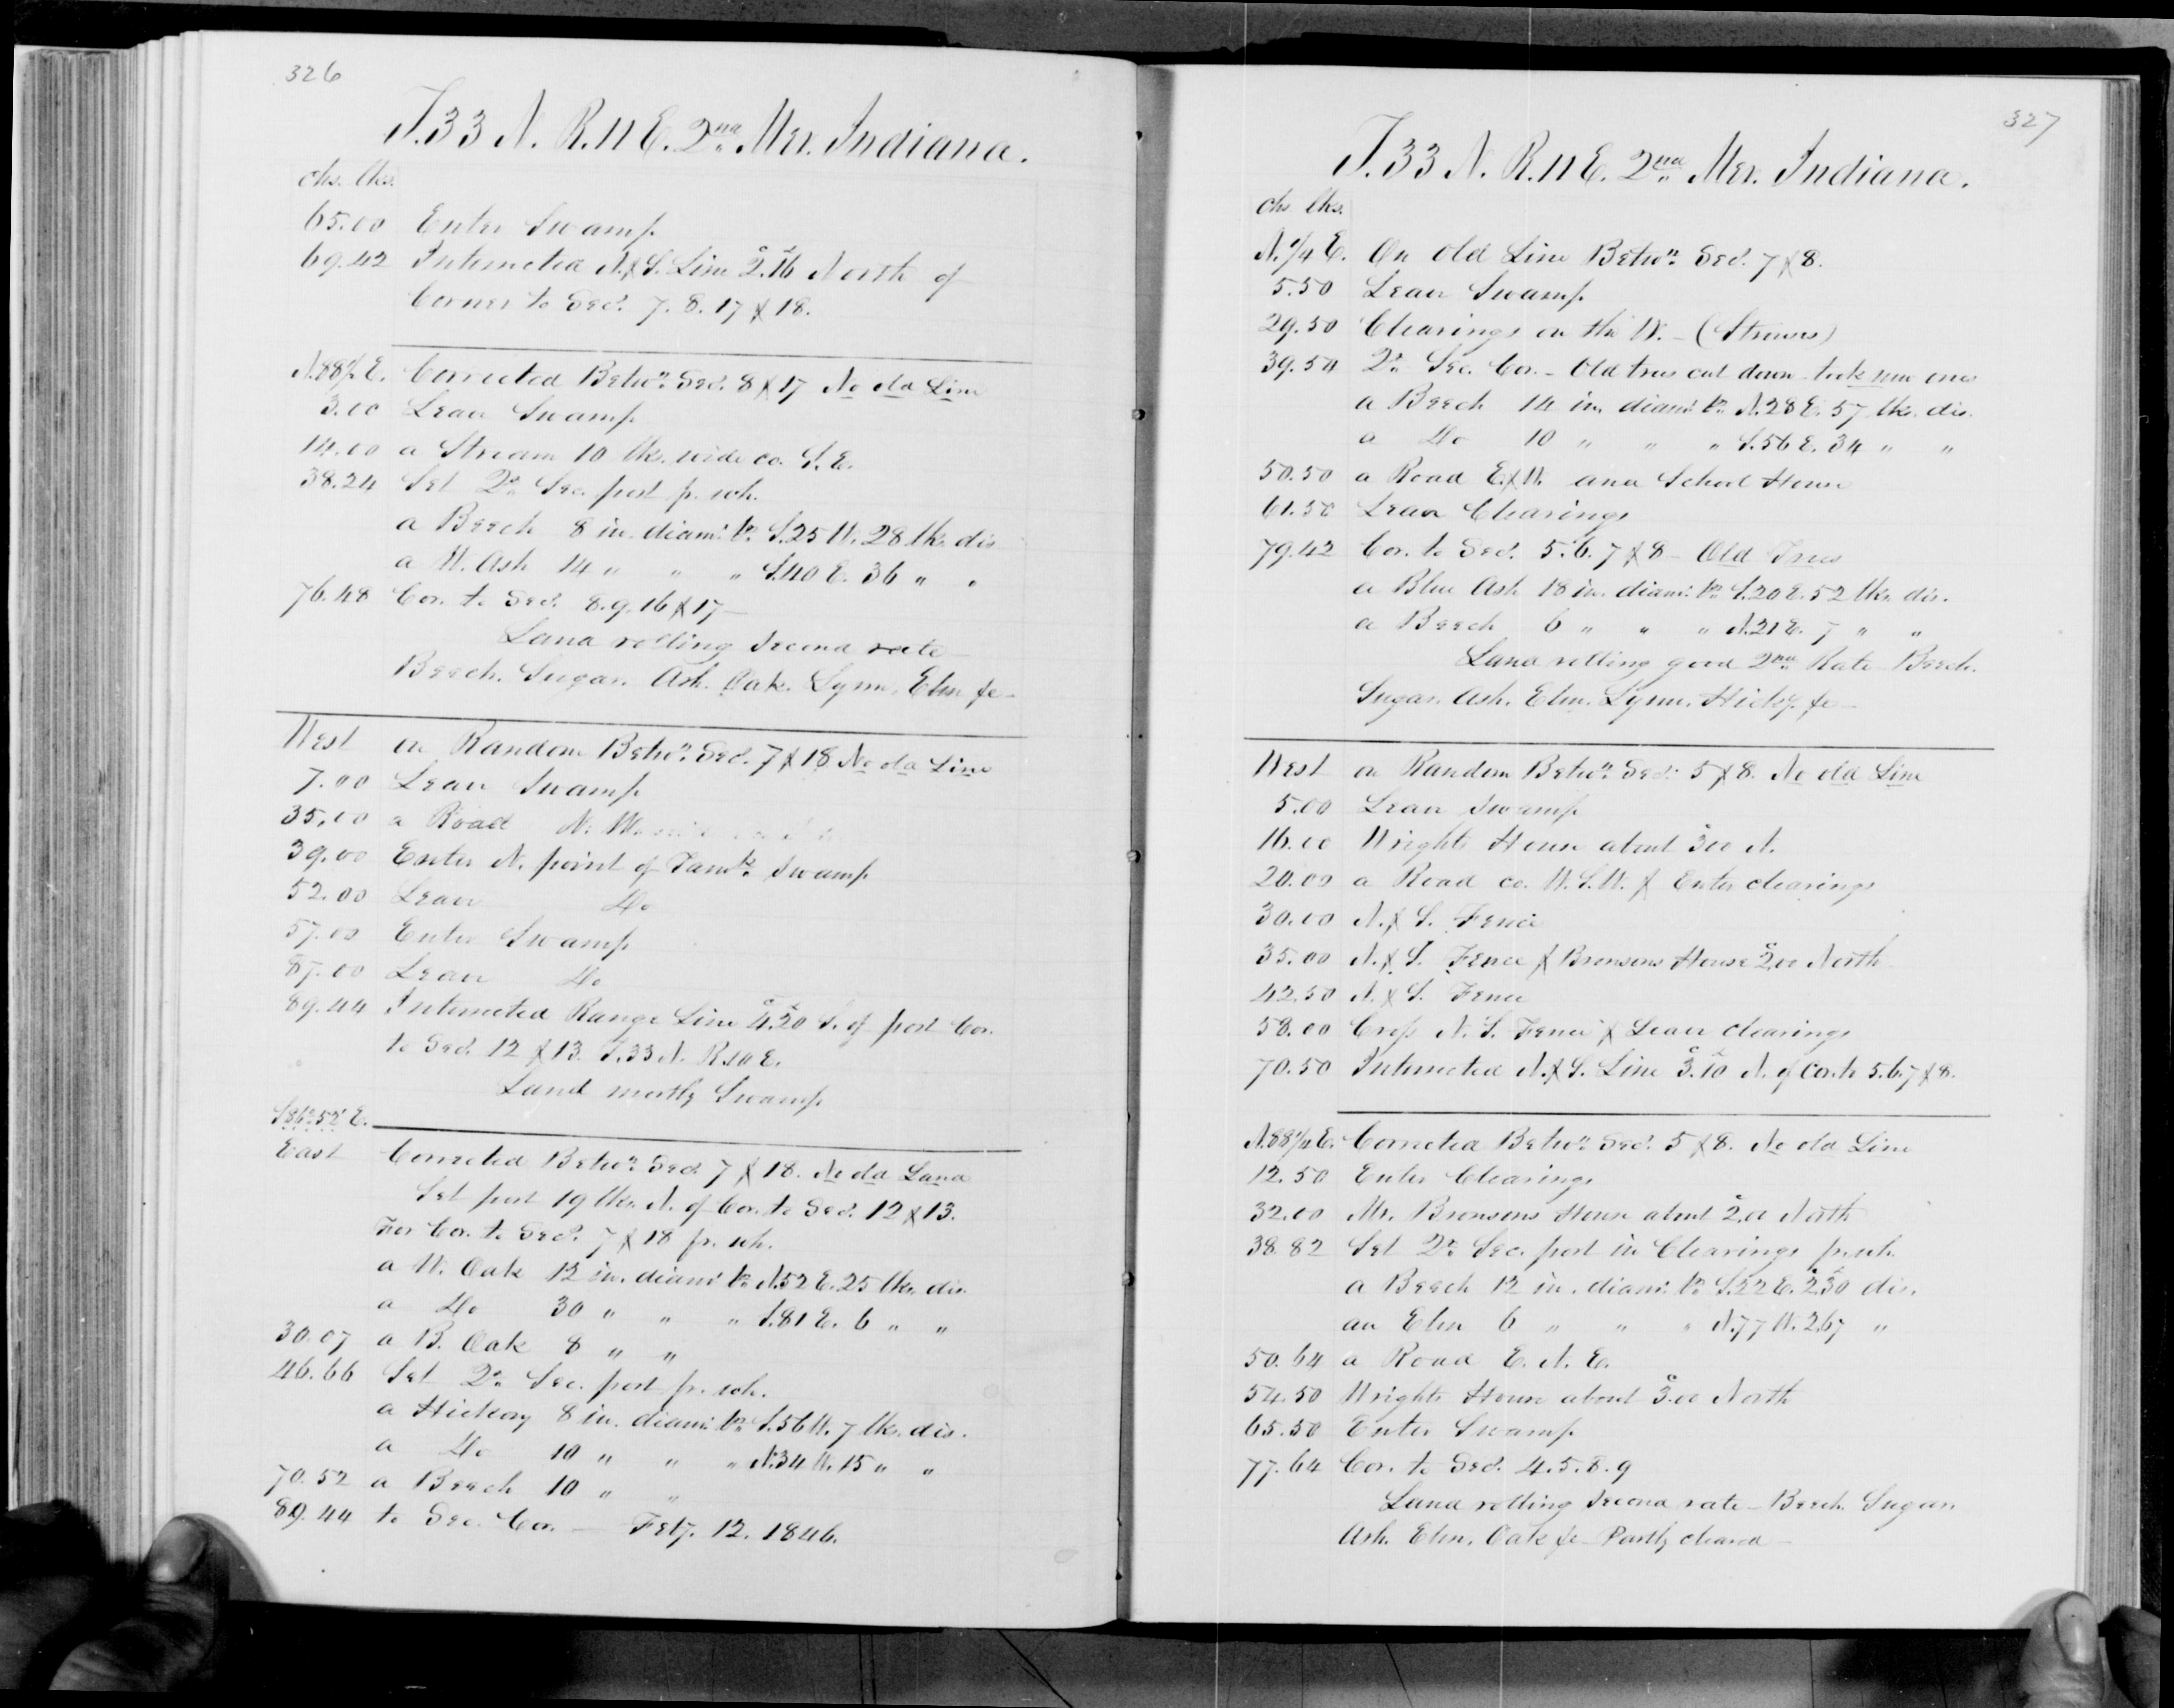 326
T.33 N. R.11 E. 2nd Mer. Indiana.
chs. lks.
65.00 Enter Swamp
69.42 Intersected N. & S. Line 2.16 North of
Corner to Secs. 7. 8. 17 & 18.
N.88½ E. Corrected Betwn. Secs. 8 & 17 No old Line
3.00 Leave Swamp
14.00 a Stream 10 lks. wide co. S.E.
38.24 Set Qr. Sec. post fr. wh.
a Beech 8 in. diamr. brs. S.25 W. 28 lks. dis
a W. Ash 14 " " " S.40 E. 36 " "
76.48 Cor. to Secs. 8. 9. 16 & 17 —
Land rolling Second rate
Beech. Sugar. Ash. Oak. Lynn. Elm &c —
West on Random Betwn. Secs. 7 & 18 No old Line
7.00 Leave Swamp
35.00 a Road N. W.
39.00 Enter N. point of Tamk. Swamp
52.00 Leave Do
57.00 Enter Swamp
87.00 Leave Do
89.44 Intersected Range Line 4.20 S. of post Cor.
to Secs. 12 & 13. T.33 N. R.10 E.
Land mostly Swamp
S.86°52' E.
East Corrected Betwn. Secs. 7 & 18. No old Land
Set post 19 lks. N. of Cor. to Secs. 12 & 13.
For Cor. to Secs. 7 & 18 fr. wh.
a W. Oak 12 in. diamr. brs. N.52 E. 25 lks. dis.
a Do 30 " " " S.81 E. 6 " "
30.07 a B. Oak 8 " "
46.66 Set Qr. Sec. post fr. wh.
a Hickory 8 in. diamr. brs. S.56 W. 7 lks. dis.
a Do 10 " " " N.34 W. 15 " "
70.52 a Beech 10 " "
89.44 to Sec. Cor. — Feby. 12. 1846.
327
T.33 N. R.11 E. 2nd Mer. Indiana.
chs lks.
N.¼ E. On Old Line Betwn. Secs. 7 & 8.
5.50 Leave Swamp
29.50 Clearings on the W. –
39.54 Qr. Sec. Cor. – Old trees cut down took new ones
a Beech 14 in. diamr. brs. N.28 E. 57 lks. dis.
a Do 10 " " " S.56 E. 34 " "
50.50 a Road E. & W. and School House
61.50 Leave Clearings
79.42 Cor. to Secs. 5. 6. 7 & 8 – Old Trees
a Blue Ash 18 in. diamr. brs. S.20 E. 52 lks. dis.
a Beech 6 " " " N.21 E. 7 " "
Land rolling good 2nd Rate Beech.
Sugar. Ash. Elm. Lynn. Hicky. &c —
West on Random Betwn. Secs. 5 & 8. No old Line
5.00 Leave Swamp
16.00 Wrights House about 3.00 N.
20.00 a Road co. W.S.W. & Enter clearings
30.00 N. & S. Fence
35.00 N. & S. Fence & Bronsons House 2.00 North
42.50 N. & S. Fence
58.00 Cross N. S. Fence & Leave clearings
70.50 Intersected N. & S. Line 3.10 N. of Cor. to 5. 6. 7 & 8.
N.88¼ E. Corrected Betwn. Secs. 5 & 8. No old Line
12.50 Enter Clearings
32.00 Mr. Bronsons House about 2.00 North
38.82 Set Qr. Sec. post in Clearings fr. wh.
a Beech 12 in. diamr. brs. S.22 E. 2.30 dis.
an Elm 6 " " " N.77 W. 2.67 "
50.64 a Road E. N. E.
54.50 Wrights House about 3.00 North
65.50 Enter Swamp
77.64 Cor. to Secs. 4. 5. 8. 9
Land rolling Second rate – Beech. Sugar.
Ash. Elm. Oak &c – Partly cleared —